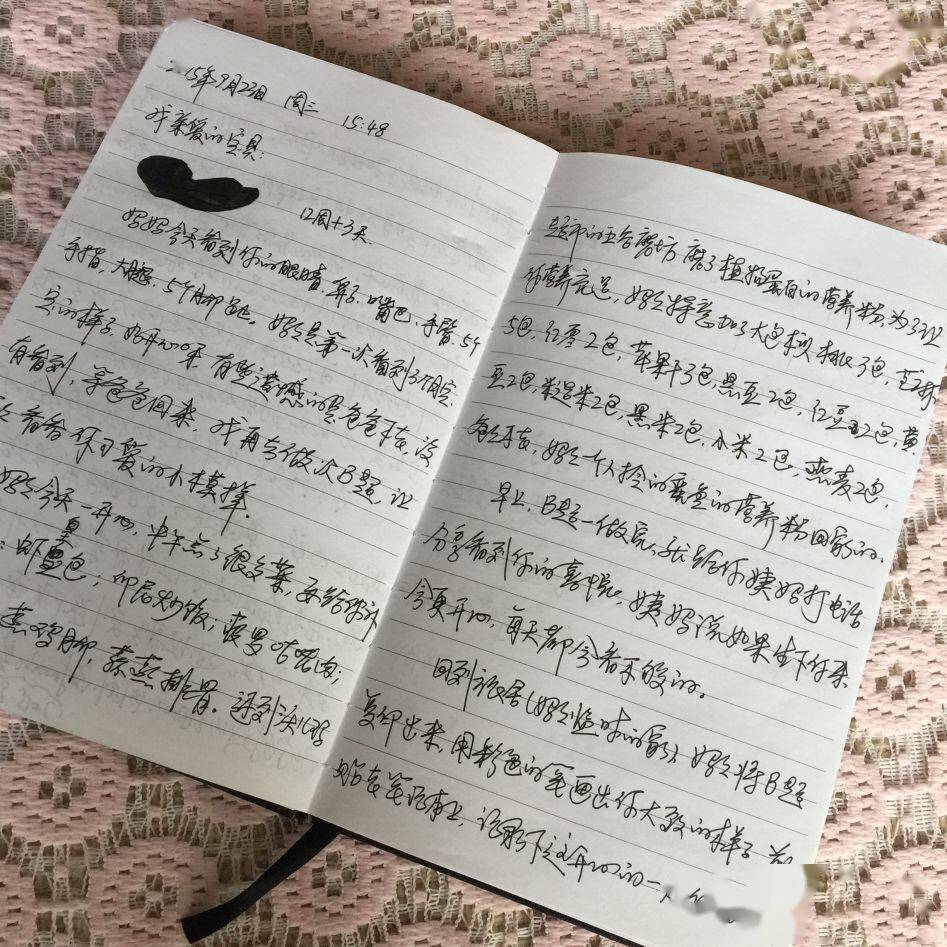 15年9月23日 周三 15:48
我亲爱的宝贝:
12周+3天.
妈妈今天看到你的眼睛、鼻子、嘴巴、手臂、5个
手指、大腿、5个脚趾。妈妈是第一次看到3个月宝
宝的样子,好开心呀。有些遗憾的是爸爸不在,没
有看到,等爸爸回来,我再去做次B超,让
看看你可爱的小模样。
妈妈今天一开心,中午点了很多菜,再给你补
:虾皇包;印尼炒饭;菠萝咕咾肉;
蒸鸡脚,蒜蒸排骨。还到沃尔玛
超市的五谷磨坊磨了植物蛋白的营养粉,为了让
你营养充足,妈妈特意加了大包核桃3包,芝麻
5包,红枣2包,苹果干3包,黑豆2包,红豆2包,黄
豆2包,糙米2包,黑米2包,小米2包,燕麦2包,
爸爸不在,妈妈一个人拎的重重的营养粉回家的。
早上,B超一做完,我给你姨妈打电话
分享看到你的喜悦。姨妈说如果生下你来
会更开心,每天都会看不够的。
回到旅居(妈妈临时的家),妈妈将B超
复印出来,用彩色的笔画出你大致的样子,
贴在笔记本上,记录下这开心的一